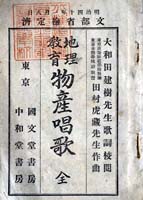 文部省檢定濟
大和田建樹先生歌詞校閲
田村虎藏先生作曲
地理
教育
物産唱歌 全
東京
國文堂書房
中和堂書房